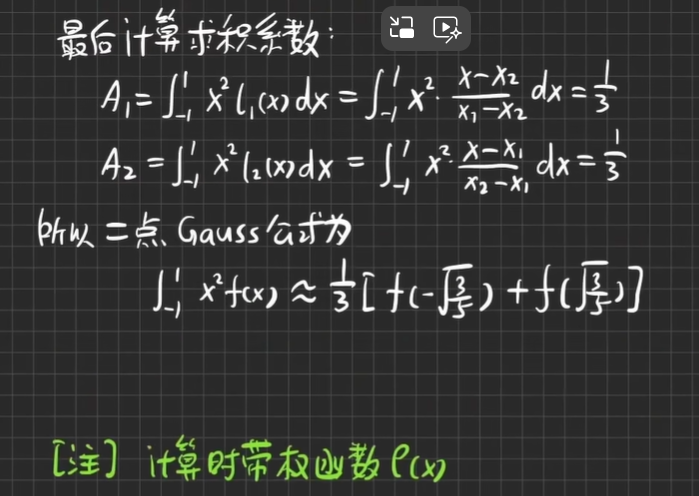 最后计算求积系数:
A₁ = ∫₋₁¹ x² l₁(x) dx = ∫₋₁¹ x² · (x-x₂)/(x₁-x₂) dx = 1/3
A₂ = ∫₋₁¹ x² l₂(x) dx = ∫₋₁¹ x² · (x-x₁)/(x₂-x₁) dx = 1/3
所以二点 Gauss 公式为
∫₋₁¹ x² f(x) ≈ 1/3 [ f(-√(3/5)) + f(√(3/5)) ]
[注] 计算时带权函数 ρ(x)